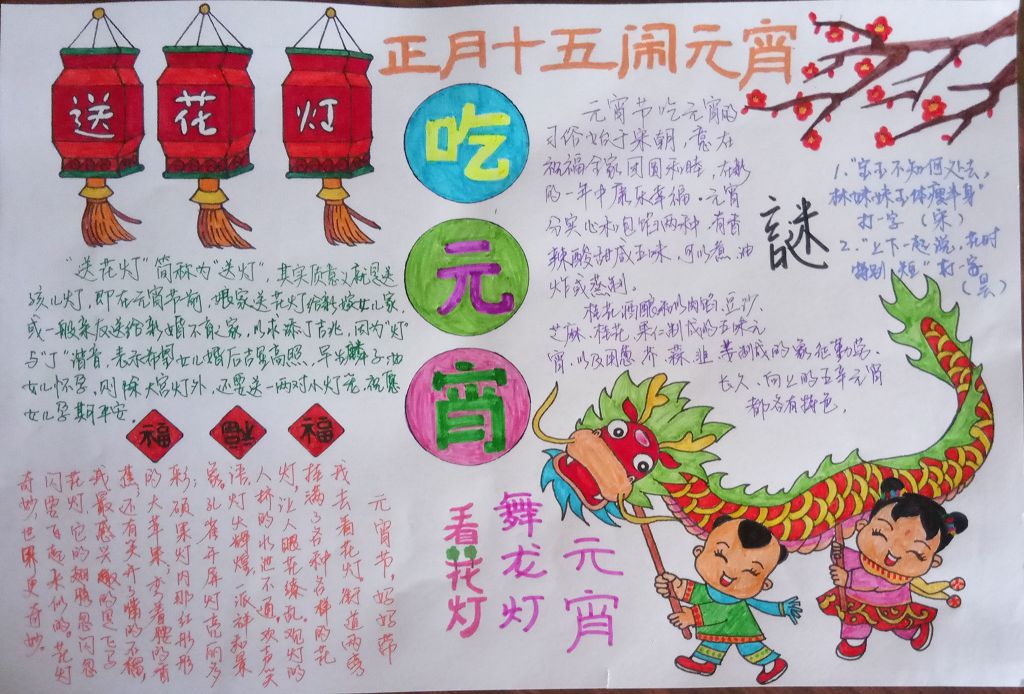 正月十五闹元宵
送花灯
吃
元
宵
"送花灯"简称为"送灯",其实质意义就是送
孩儿灯,即在元宵节前,娘家送花灯给新嫁女儿家,
或一般亲友送给新婚不育之家,以求添丁吉兆,因为"灯"
与"丁"谐音,表示希望女儿婚后吉星高照,早生麟子;如
女儿怀孕,则除大宫灯外,还要送一两对小灯笼,祝愿
女儿孕期平安。
福
福
福
元宵节吃元宵的
习俗始于宋朝,意在
祝福全家团圆和睦,在新
的一年中康乐幸福。元宵
分实心和包馅两种,有香
辣酸甜咸五味,可以煮、油
炸或蒸制。
桂花酒酿
以肉馅、豆沙、
芝麻、桂花、果仁制成的五味元
宵,以及用葱、芥、蒜、韭、
制成的象征勤劳、
长久、向上的五辛元宵
都各有特色。
謎
1."宝玉不知何处去,
林妹妹玉体瘦半身"
打一字(宋)
2."上下一起说,花时
特别短"打一字
(昙)
元宵节,妈妈带
我去看花灯,街道两旁
挂满了各种各样的花
灯,让人眼花缭乱。观灯的
人挤的水泄不通,欢声笑
语,灯火辉煌,一派祥和景
象,孔雀开屏灯亮丽多
彩;硕果灯内那红彤彤
的大苹果,弯着腰的香
蕉,还有笑开了嘴的石榴,
我最感兴趣的是飞
花灯,它的翅膀忽闪忽
闪,要飞起来似的。花灯
奇妙,世界更奇妙。
看花灯
舞龙灯
元宵